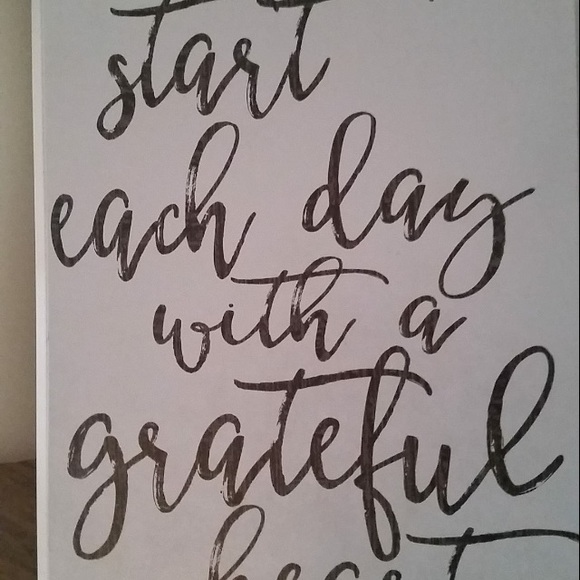 start
each day
with a
grateful
heart